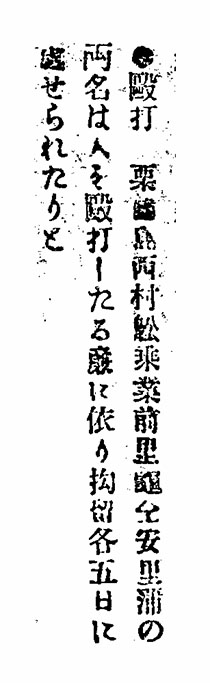 ●殴打　栗國島西村舩乗業前里蒲仝安里蒲の
両名は人を殴打したる廉に依り拘留各五日に
處せられたりと